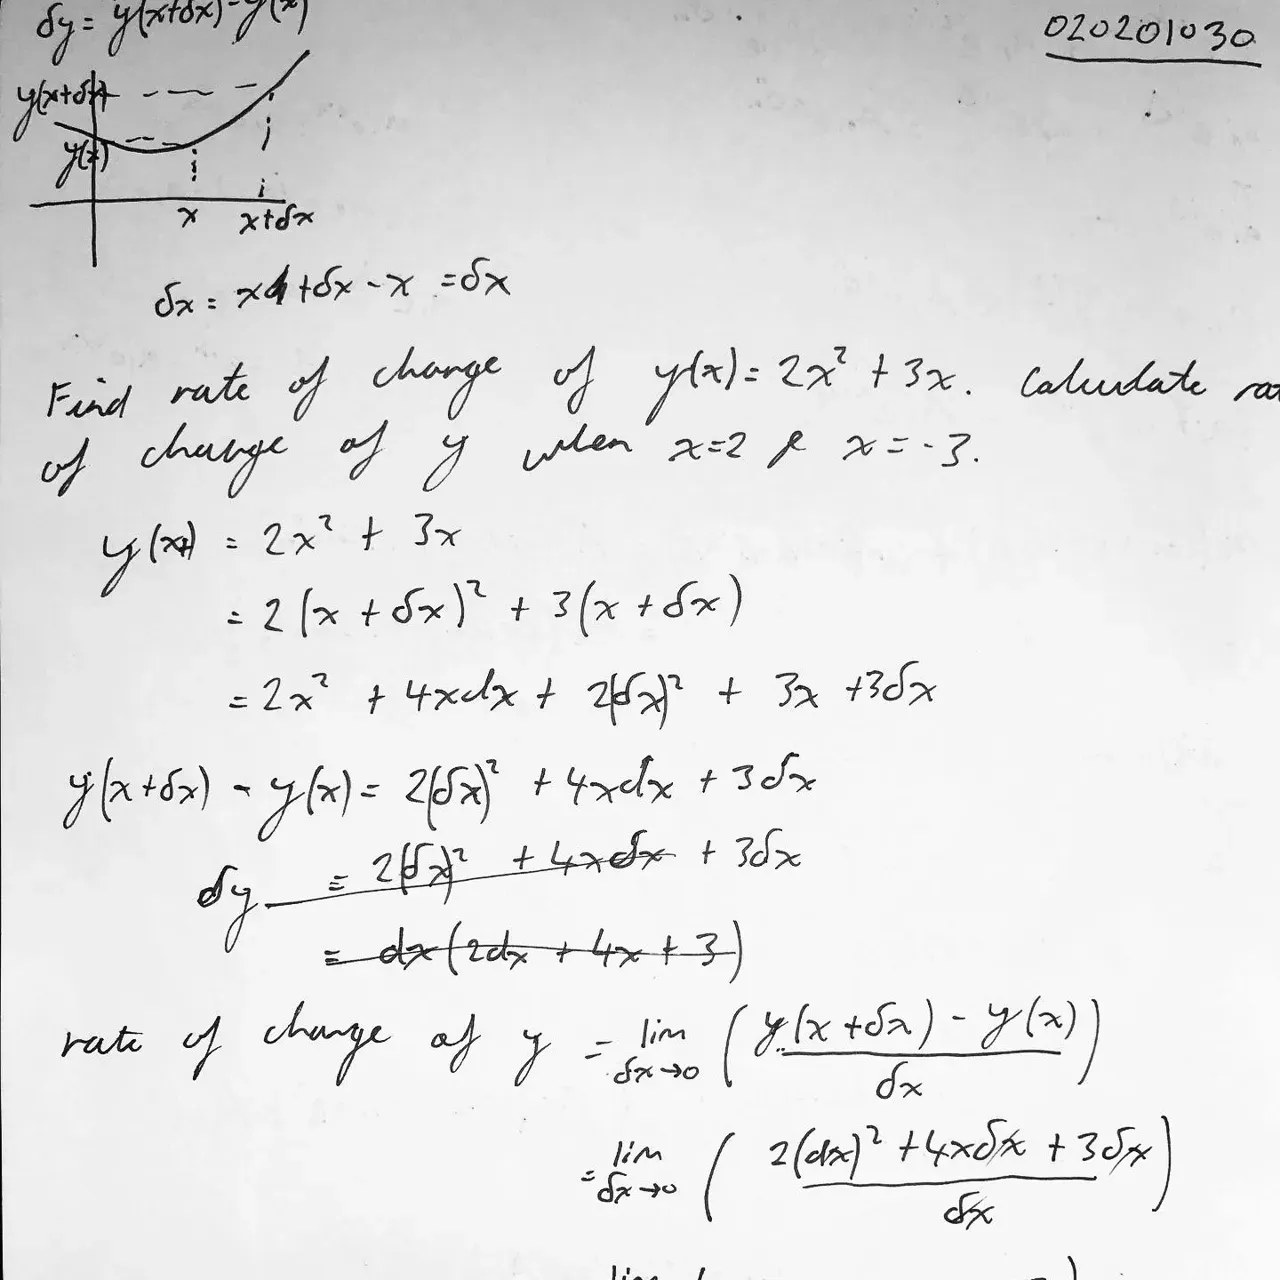 δy = y(x+δx) - y(x)
020201030
y(x+δx)
y(x)
x x+δx
δx = x + δx - x = δx
Find rate of change of y(x) = 2x² + 3x. Calculate
of change of y when x=2 & x = -3.
y(x) = 2x² + 3x
= 2(x + δx)² + 3(x + δx)
= 2x² + 4xdx + 2(δx)² + 3x + 3δx
y(x+δx) - y(x) = 2(δx)² + 4xdx + 3δx
δy = 2(δx)² + 4xδx + 3δx
= dx(2dx + 4x + 3)
rate of change of y = lim δx→0 ( y(x+δx) - y(x) / δx )
= lim δx→0 ( 2(dx)² + 4xδx + 3δx / δx )
lim